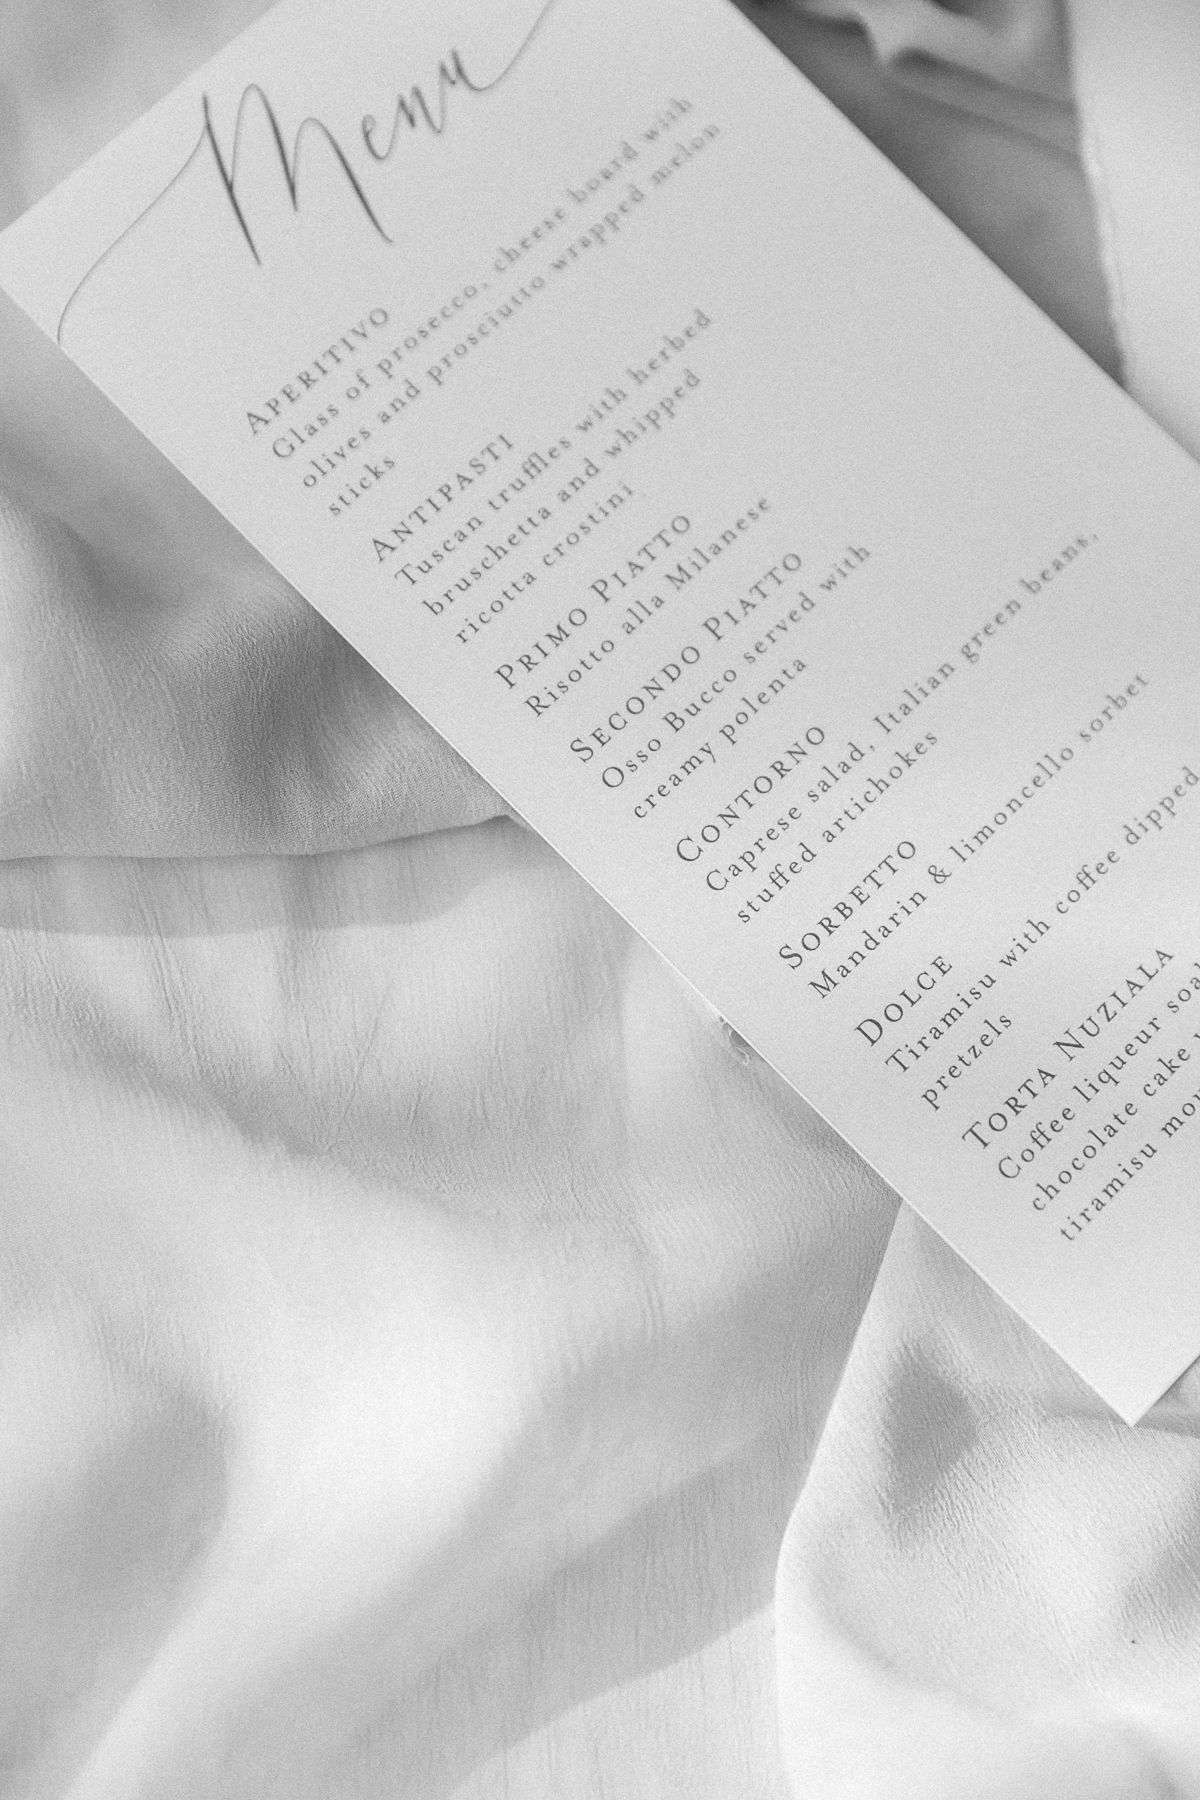 Menu
APERITIVO
Glass of prosecco, cheese board with
olives and prosciutto wrapped melon
sticks
ANTIPASTI
Tuscan truffles with herbed
bruschetta and whipped
ricotta crostini
PRIMO PIATTO
Risotto alla Milanese
SECONDO PIATTO
Osso Bucco served with
creamy polenta
CONTORNO
Caprese salad, Italian green beans,
stuffed artichokes
SORBETTO
Mandarin & limoncello sorbet
DOLCE
Tiramisu with coffee dipped
pretzels
TORTA NUZIALA
Coffee liqueur
chocolate cake
tiramisu